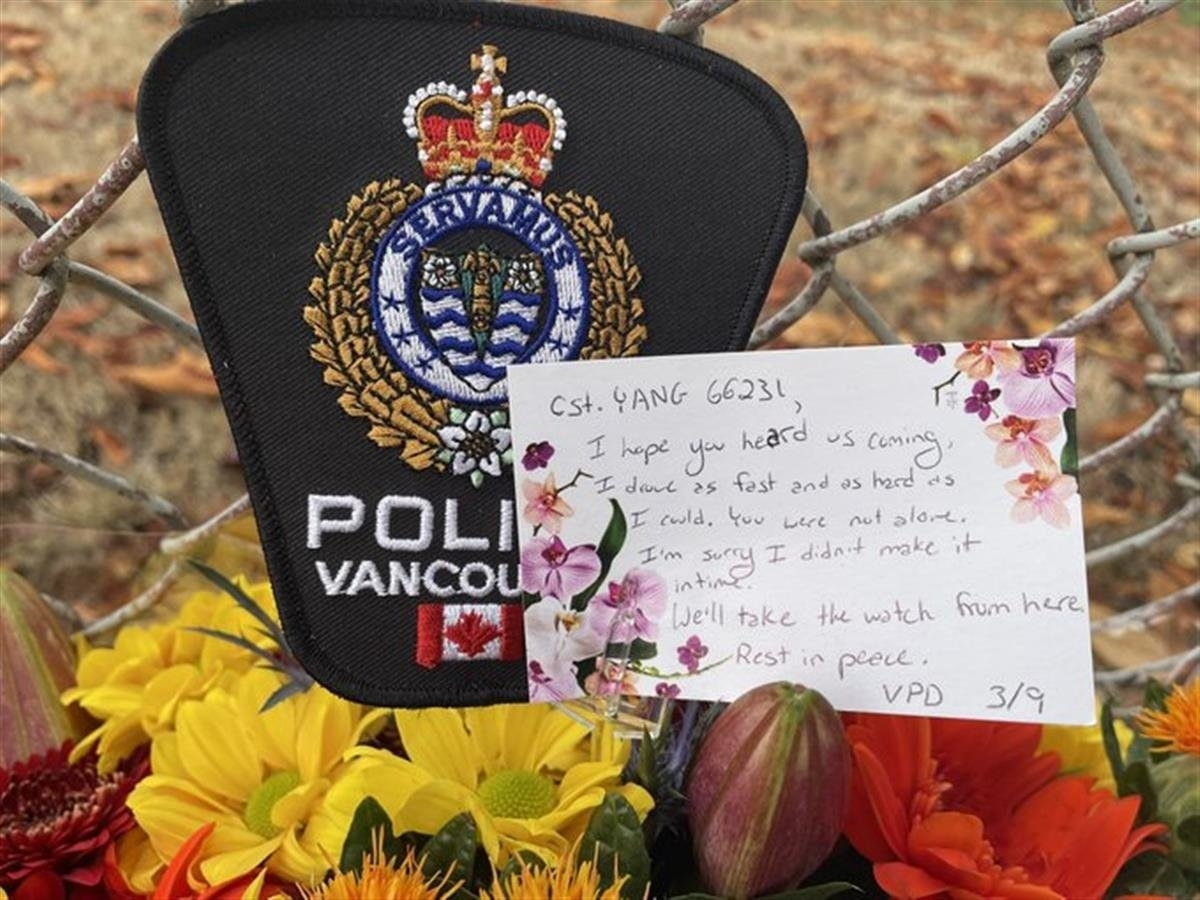 SERVAMUS
POLI
VANCOU
Cst. YANG 66231,
I hope you heard us coming,
I drove as fast and as hard as
I could. You were not alone.
I'm sorry I didn't make it
in time.
We'll take the watch from here.
Rest in peace.
VPD 3/9